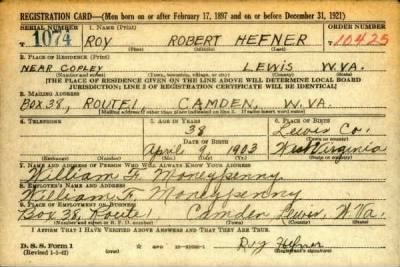 REGISTRATION CARD—(Men born on or after February 17, 1897 and on or before December 31, 1921)
SERIAL NUMBER 1. NAME (Print) ORDER NUMBER
T 1074 ROY ROBERT HEFNER 10425
(First) (Middle) (Last)
2. PLACE OF RESIDENCE (Print)
NEAR COPLEY LEWIS W.VA.
(Number and street) (Town, township, village, or city) (County) (State)
[THE PLACE OF RESIDENCE GIVEN ON THE LINE ABOVE WILL DETERMINE LOCAL BOARD
JURISDICTION; LINE 2 OF REGISTRATION CERTIFICATE WILL BE IDENTICAL]
3. MAILING ADDRESS
BOX 38, ROUTE 1 CAMDEN, W. VA.
[Mailing address if other than place indicated on line 2. If same insert word same]
4. TELEPHONE 5. AGE IN YEARS 6. PLACE OF BIRTH
38 Lewis Co.
DATE OF BIRTH
April 9, 1903 West Virginia
7. NAME AND ADDRESS OF PERSON WHO WILL ALWAYS KNOW YOUR ADDRESS
William F. Moneypenny
8. EMPLOYER'S NAME AND ADDRESS
William F. Moneypenny
9. PLACE OF EMPLOYMENT OR BUSINESS
Box 38, Route 1 Camden Lewis, W. Va.
I AFFIRM THAT I HAVE VERIFIED ABOVE ANSWERS AND THAT THEY ARE TRUE.
D. S. S. Form 1
(Revised 1-1-42) Hefner